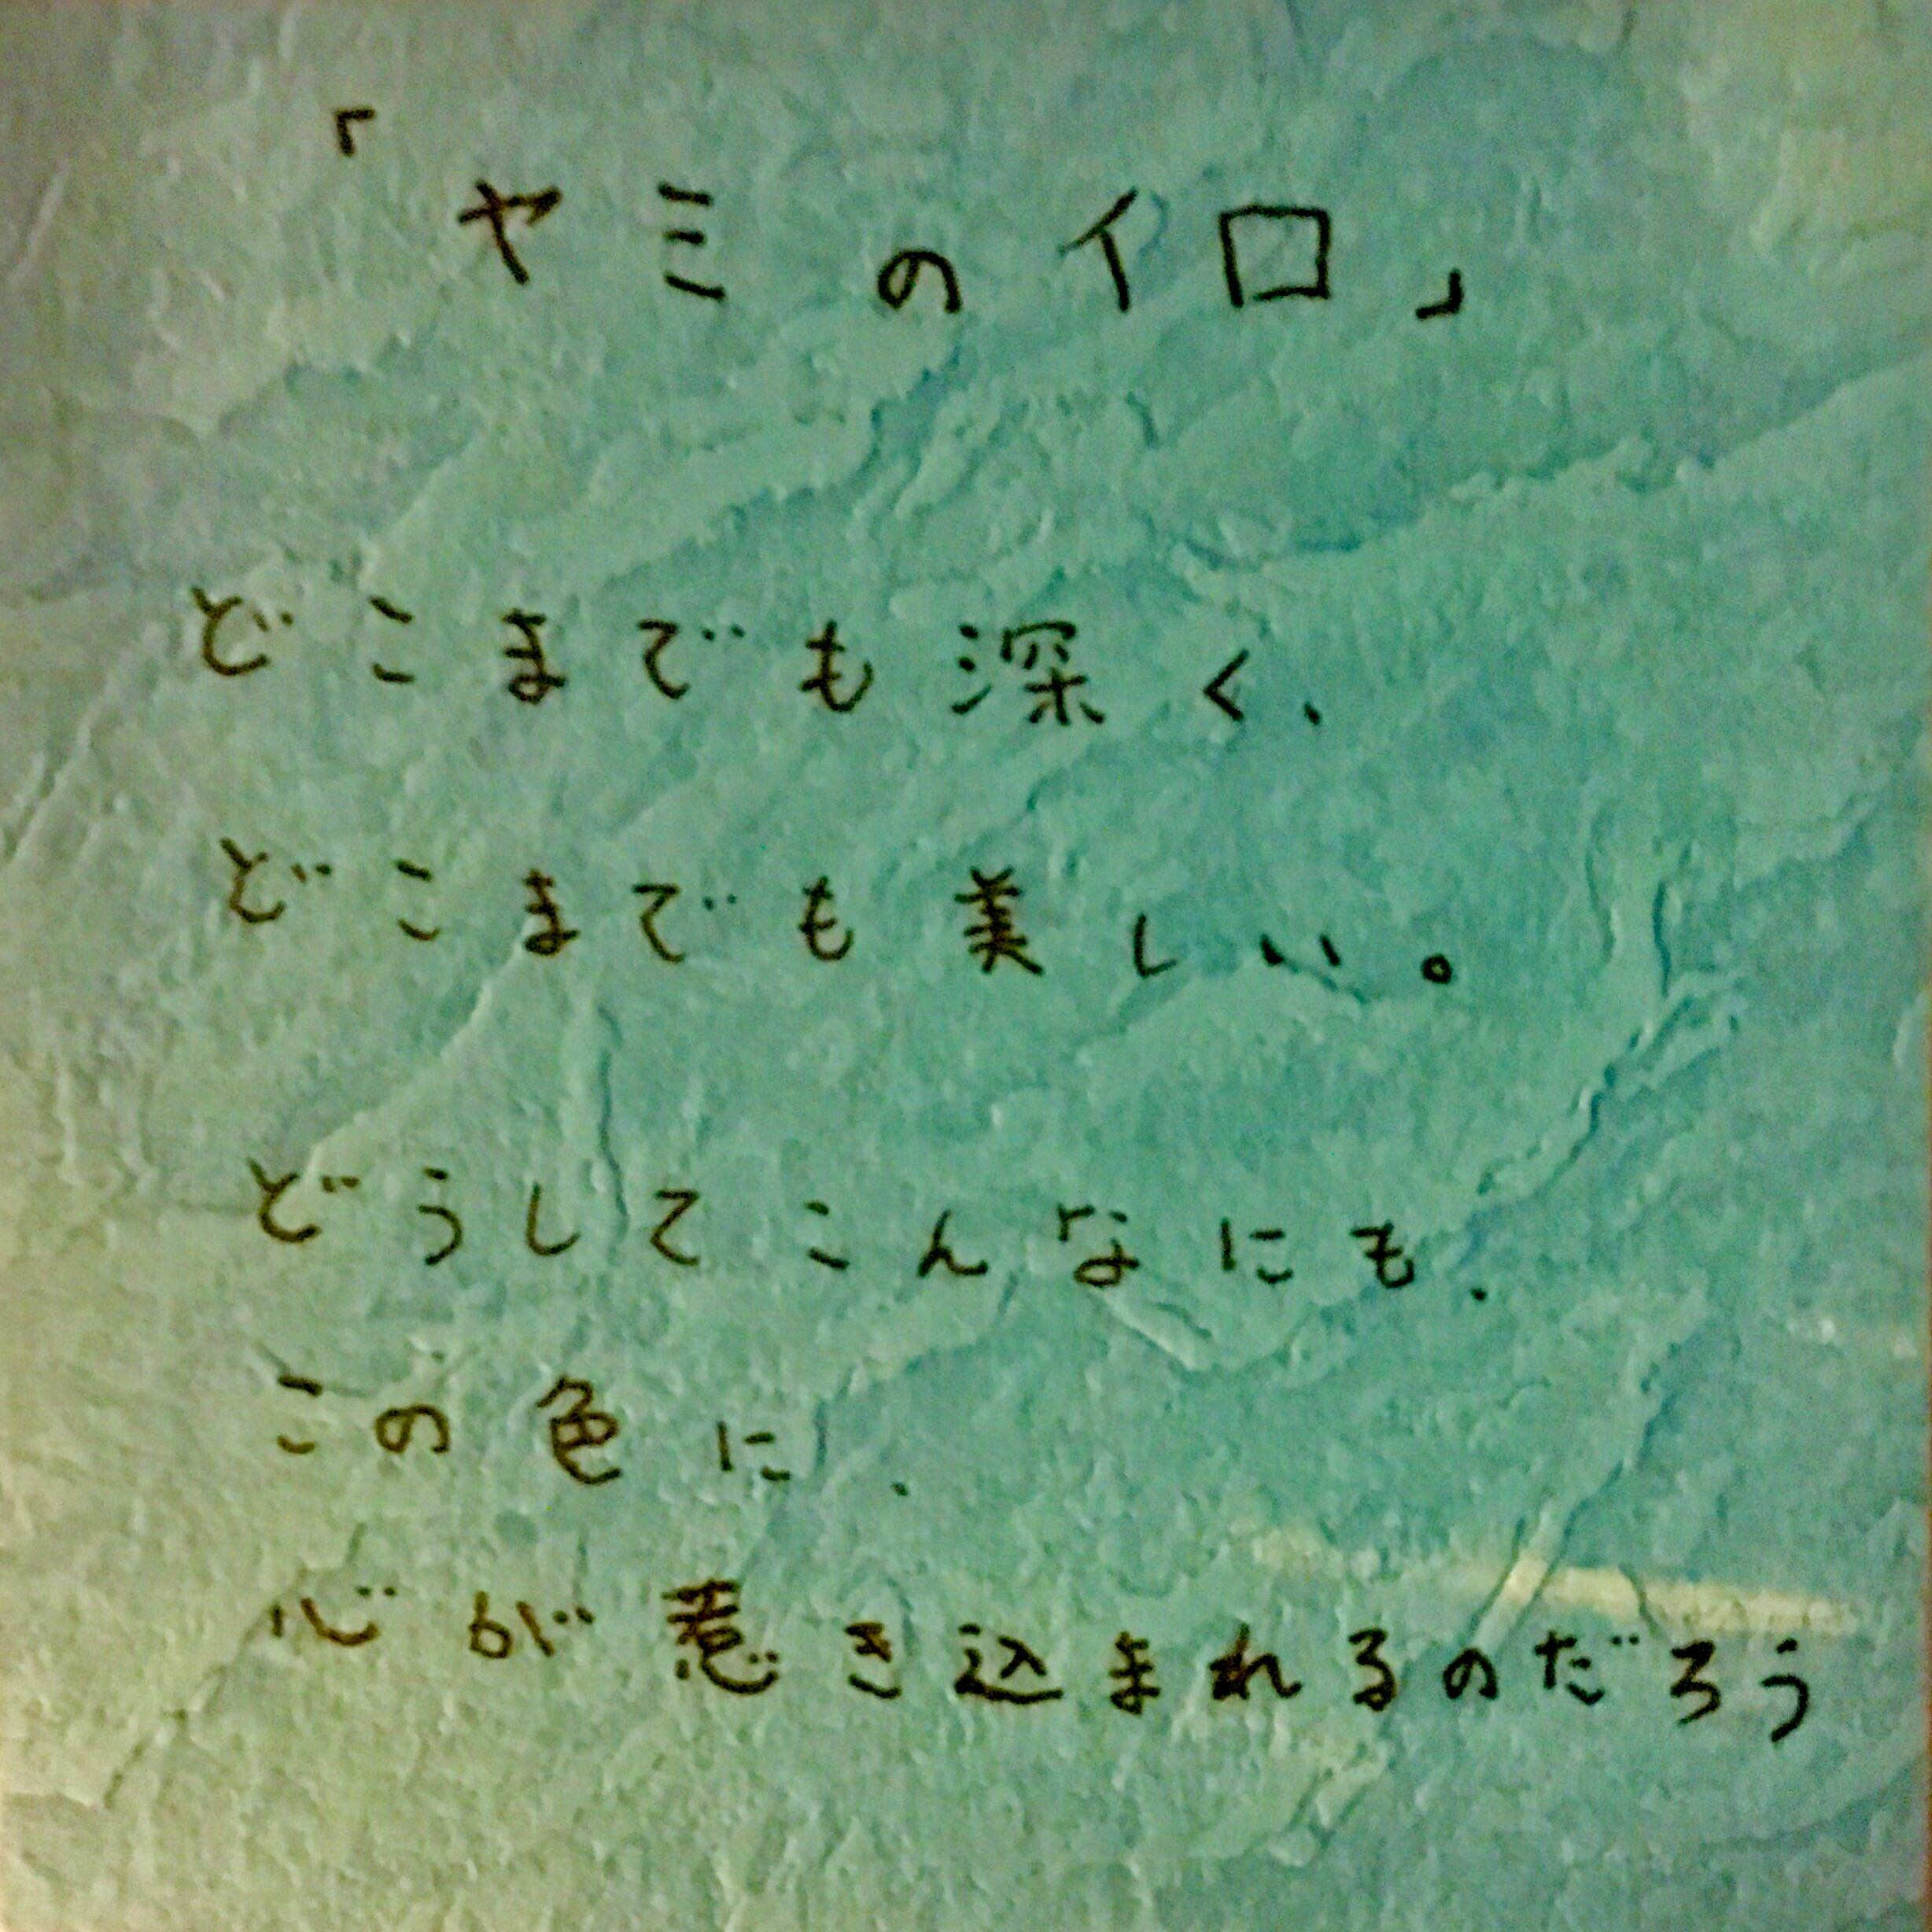 「ヤミのイロ」
どこまでも深く、
どこまでも美しい。
どうしてこんなにも、
この色に、
心が惹き込まれるのだろう